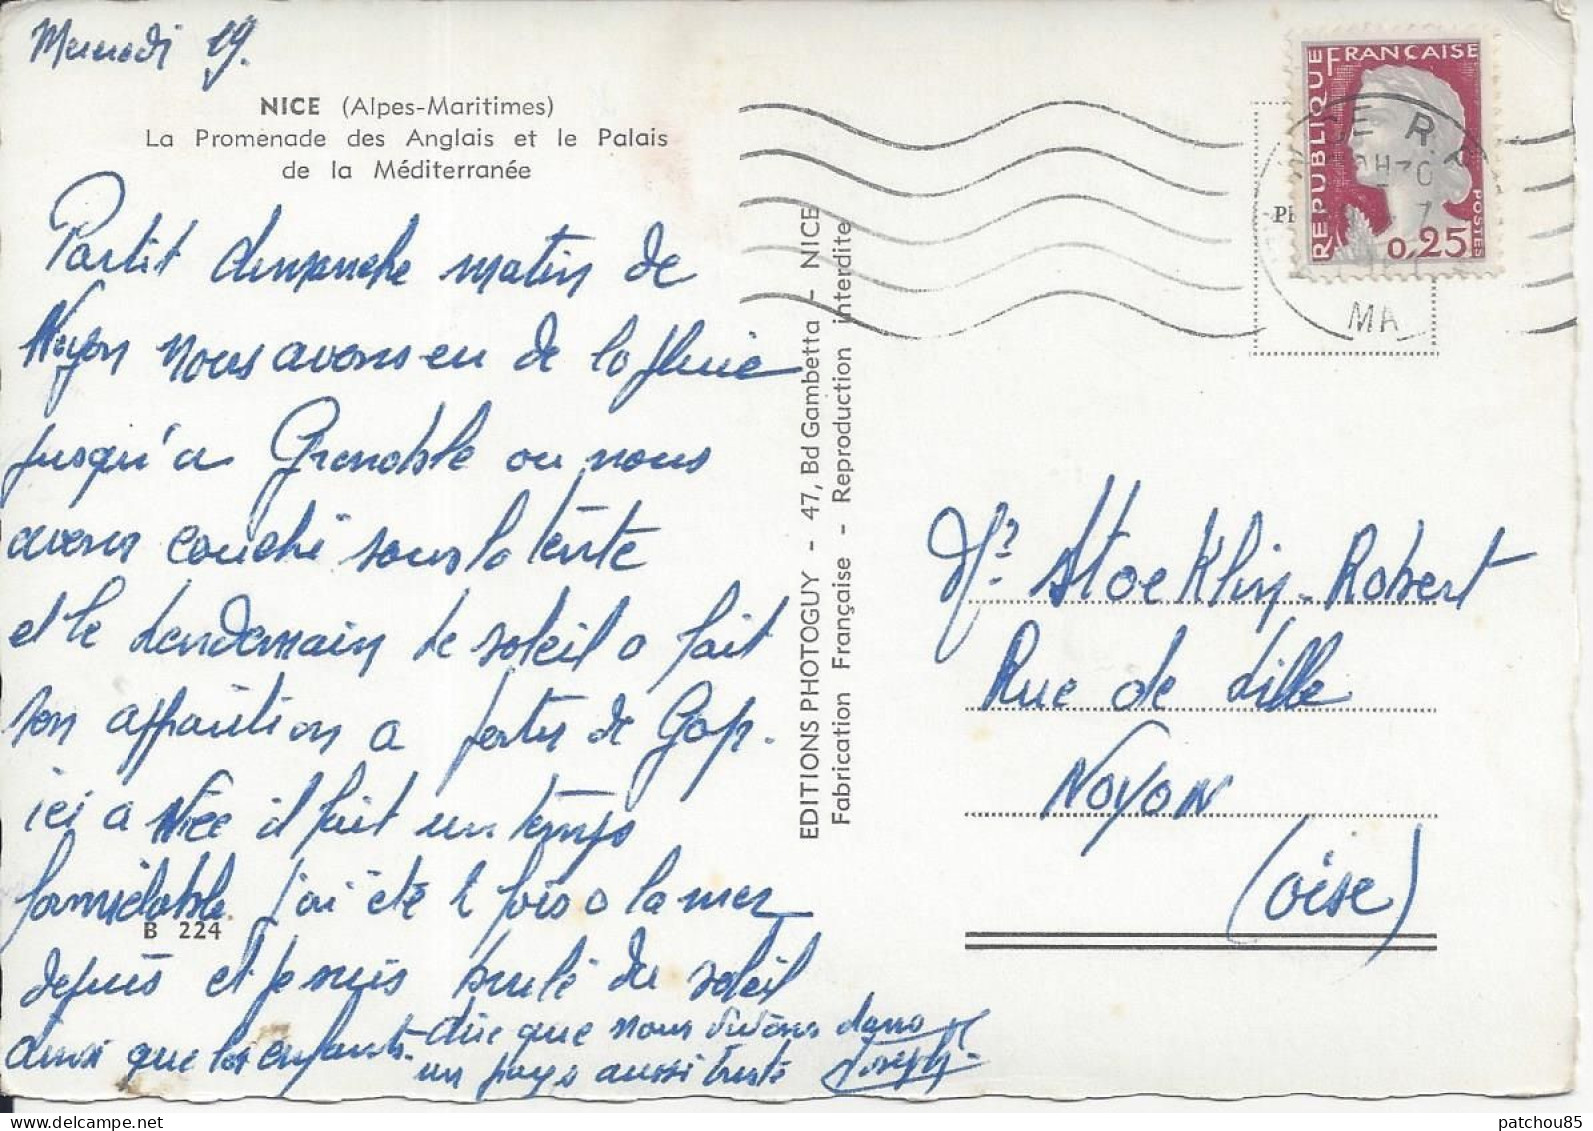 Mercredi 19.
NICE (Alpes-Maritimes)
La Promenade des Anglais et le Palais
de la Méditerranée
Partit dimanche matin de
Noyon nous avons eu de la pluie
jusqu'a Grenoble ou nous
avons couché sous la tente
et le lendemain le soleil a fait
son apparition a partir de Gap.
ici a Nice il fait un temps
formidable j'ai été 2 fois a la mer
B 224
depuis et je suis brulé du soleil
ainsi que les enfants. dire que nous vivons dans
un pays aussi triste Joseph
EDITIONS PHOTOGUY - 47, Bd Gambetta - NICE
Fabrication Française - Reproduction interdite
REPUBLIQUE FRANÇAISE
POSTES
0,25
NICE R.P.
MA
Mr Stoecklin-Robert
Rue de Lille
Noyon
(oise)
patchou85